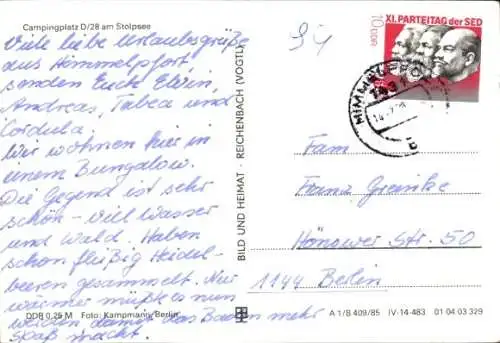 Campingplatz D/28 am Stolpsee
Viele liebe Urlaubsgrüße
aus Himmelpfort
senden Euch Edwin,
Andreas, Tabea und
Cordula.
Wir wohnen hier in
einem Bungalow.
Die Gegend ist sehr
schön - viel Wasser
und Wald. Haben
schon fleißig Heidel-
beeren gesammelt. Nur
wärmer müßte es nun
werden, damit das Baden mehr
Spaß macht.
DDR 0,25 M Foto: Kampmann, Berlin
BILD UND HEIMAT · REICHENBACH (VOGTL)
10 DDR
XI. PARTEITAG der SED
HIMMELPFORT
1431
Fam
Franz
Hönower Str. 50
1144 Berlin
A 1/B 409/85 IV-14-483 01 04 03 329